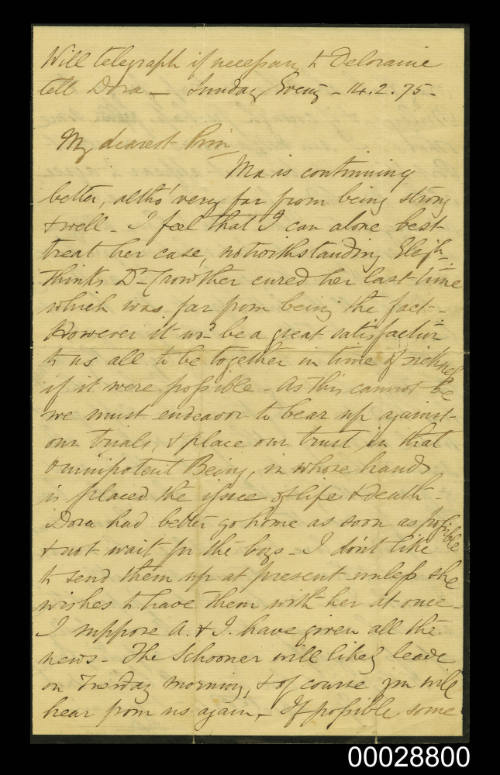 Will telegraph if necessary to Deloraine
tell Dora _ Sunday Eveng _ 14.2.75 _
My dearest Prin
Ma is continuing
better, altho' very far from being strong
& well _ I feel that I can alone best
treat her case, notwithstanding Elizh
thinks Dr Crowther cured her last time
which was far from being the fact _
However it wd be a great satisfaction
to us all to be together in time of sickness
if it were possible _ As this cannot be
we must endeavor to bear up against
our trials, & place our trust in that
Omnipotent Being, in whose hands
is placed the issue of life & death _
Dora had better go home as soon as possible
& not wait for the boys _ I don't like
to send them up at present unless she
wishes to have them with her at once _
I suppose A. & I. have given all the
news _ The Schooner will likely leave
on Tuesday morning, & of course you will
hear from us again _ If possible some
00028800